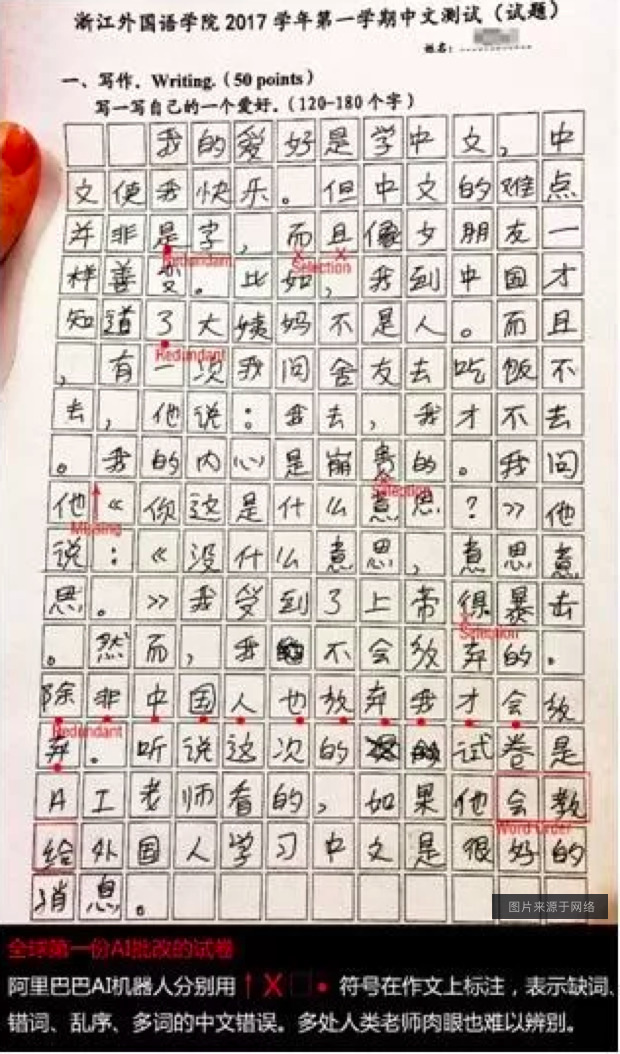 浙江外国语学院2017学年第一学期中文测试（试题）
姓名：
一、写作．Writing.（50 points）
写一写自己的一个爱好．（120-180个字）
我的爱好是学中文，中
文使我快乐。但中文的难点
并非是字，而且像少朋友一
Redundant
Selection
样善变。比如，我到中国才
知道了大姨妈不是人。而且
Redundant
，有一次我问舍友去吃饭不
去，他说：我去，我才不去
。我的内心是崩贵的。我问
Selection
他《你这是什么意思？》他
Missing
说：《没什么意思，意思意
思。》我受到了上帝得暴击
Selection
。然而，我不会放弃的。
除非中国人也放弃我才会放
Redundant
弃。听说这次的试卷是
AI老师看的，如果他会教
Word Order
给外国人学习中文是很好的
消息。
图片来源于网络
全球第一份AI批改的试卷
阿里巴巴AI机器人分别用↑X□•符号在作文上标注，表示缺词、
错词、乱序、多词的中文错误。多处人类老师肉眼也难以辨别。